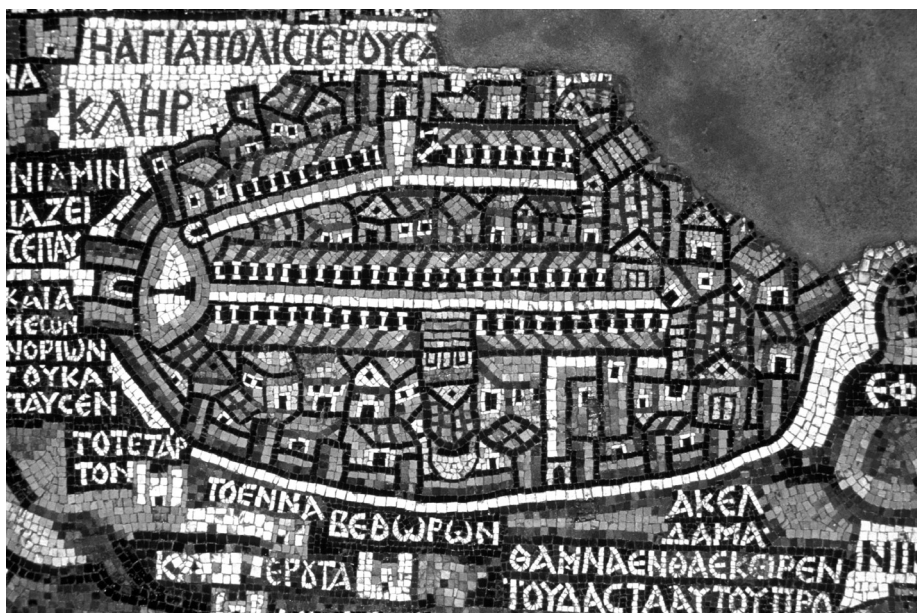 Η ΑΓΙΑ ΠΟΛΙC ΙΕΡΟΥCΑ
ΚΛΗΡ
ΝΙΑΜΙΝ
ΙΑΖΕΙ
CΕΠΑΥ
ΚΑΙΑ
ΜΕωΝ
ΝΟΡΙωΝ
ΟΥΚΑ
ΤΑΥCΕΝ
ΤΟ ΤΕΤΑΡ
ΤΟΝ
ΤΟ ΕΝΝΑ
ΒΕΘωΡωΝ
ΑΚΕΛ
ΔΑΜΑ
ΕΦ
ΚΑ ΕΡΟΥΤΑ
ΘΑΜΝΑ ΕΝΘΑ ΕΚΕΙΡΕΝ
ΙΟΥΔΑC ΤΑ ΑΥΤΟΥ ΠΡΟ